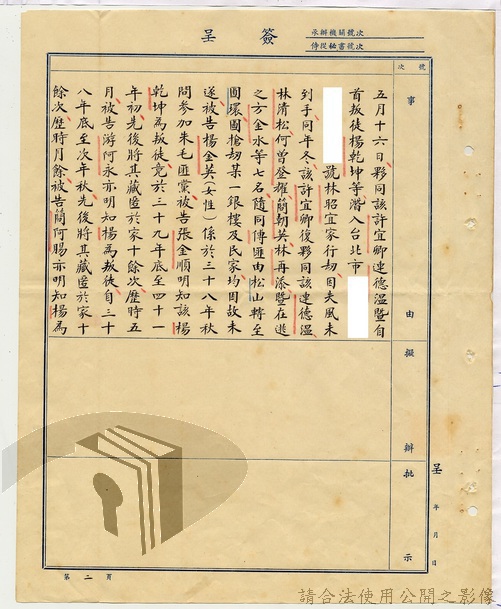 簽呈
承辦機關號次
侍從祕書號次
號次
事由
擬辦
批示
五月十六日、夥同該許宜卿連德溫暨自
首叛徒楊乾坤等潛入台北市
號林昭宜家行劫因夫風未
到手同年冬、該許宜卿復夥同該連德溫、
林清松何曾登耀簡朝英林再添暨在逃
之方金水等七名隨同傅匪由松山轉至
圓環圖搶劫某一銀樓及民家、均因故未
遂被告楊金英(女性)係於三十八年秋
問參加朱毛匪黨被告張金順明知該楊
乾坤為叛徒竟於三十九年底至四十一
年初先後將其藏匿於家十餘次、歷時五
月、被告游何永亦明知楊為叛徒、自三十
八年底至次年秋先後將其藏匿於家十
餘次、歷時月餘被告簡阿賜亦明知楊為
呈
年月日
第二頁
請合法使用公開之影像